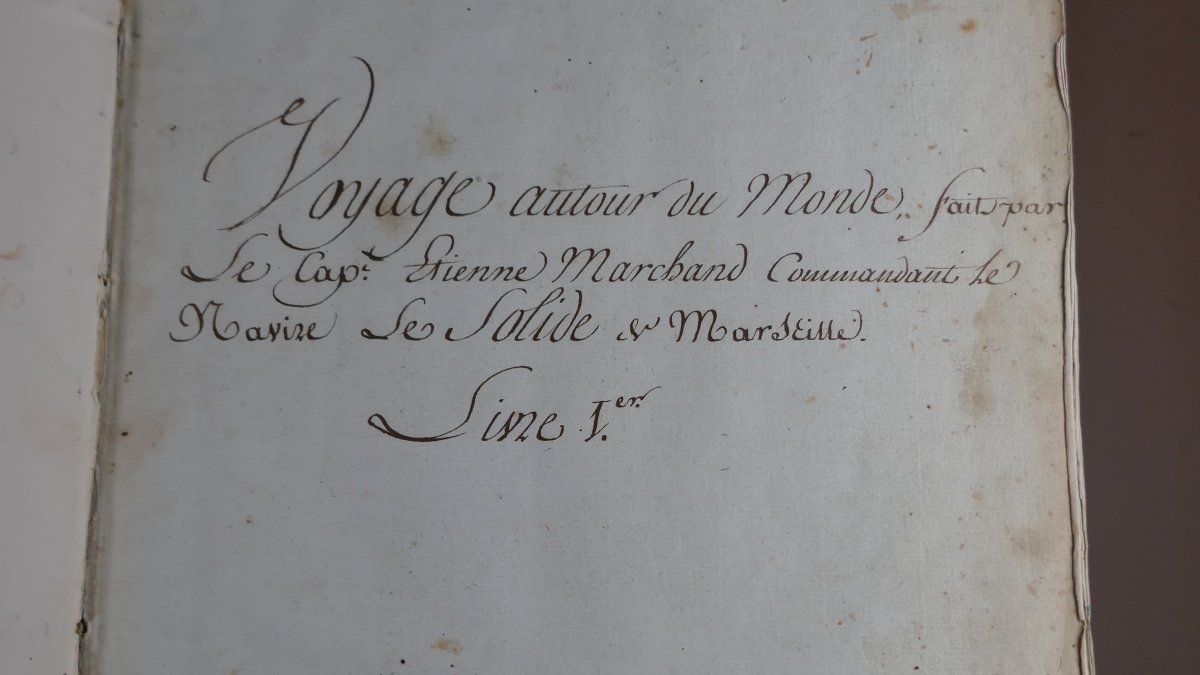 Voyage autour du Monde, fait par
Le Capt. Etienne Marchand Commandant Le
Navire Le Solide de Marseille.
Livre 1.er